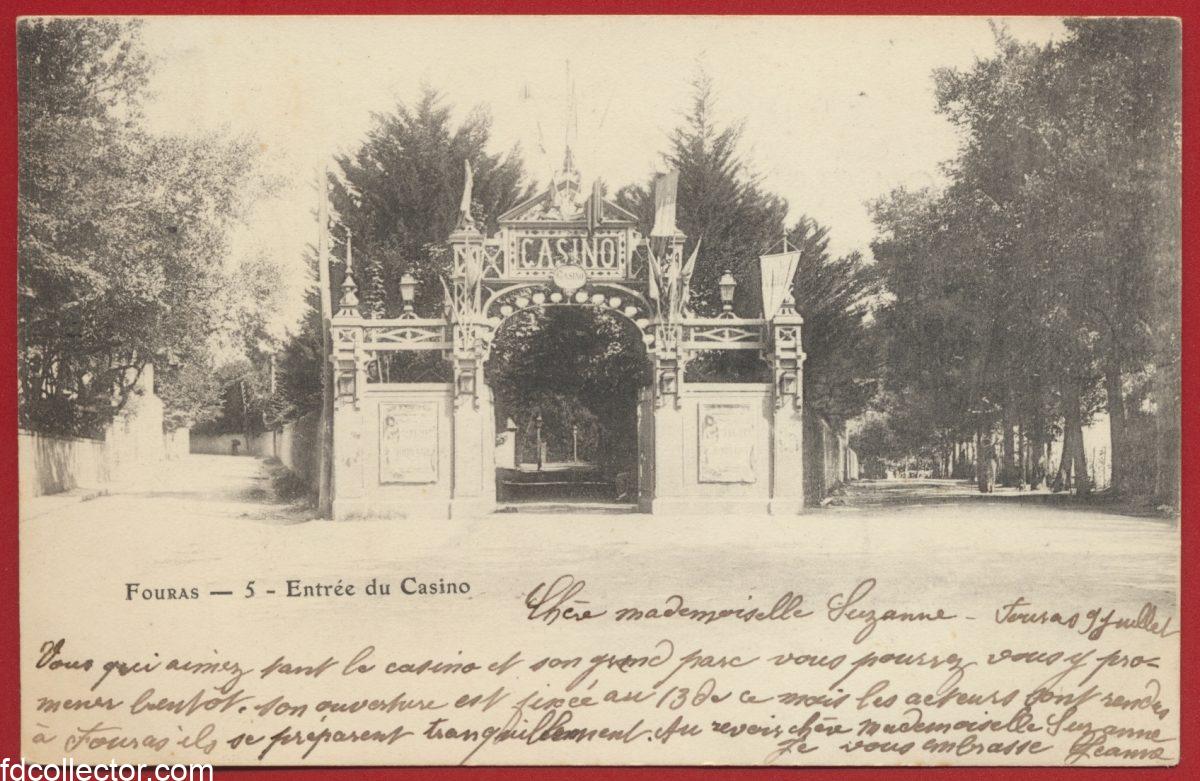 CASINO
CASINO
FOURAS — 5 - Entrée du Casino
Chère mademoiselle Suzanne - Fouras 9 Juillet
Vous qui aimez tant le casino et son grand parc vous pourrez vous y pro-
mener bientôt. son ouverture est fixée au 13 de ce mois les acteurs sont rendus
à Fouras ils se préparent tranquillement. Au revoir chère mademoiselle Suzanne
Je vous embrasse Jeanne
fdcollector.com